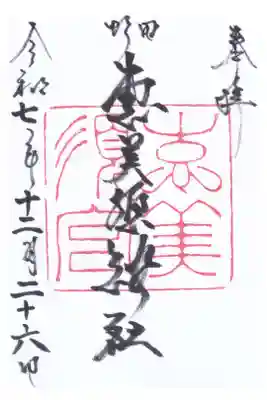 奉拝
恵美須神社
恵美須宮
令和七年十二月二十六日